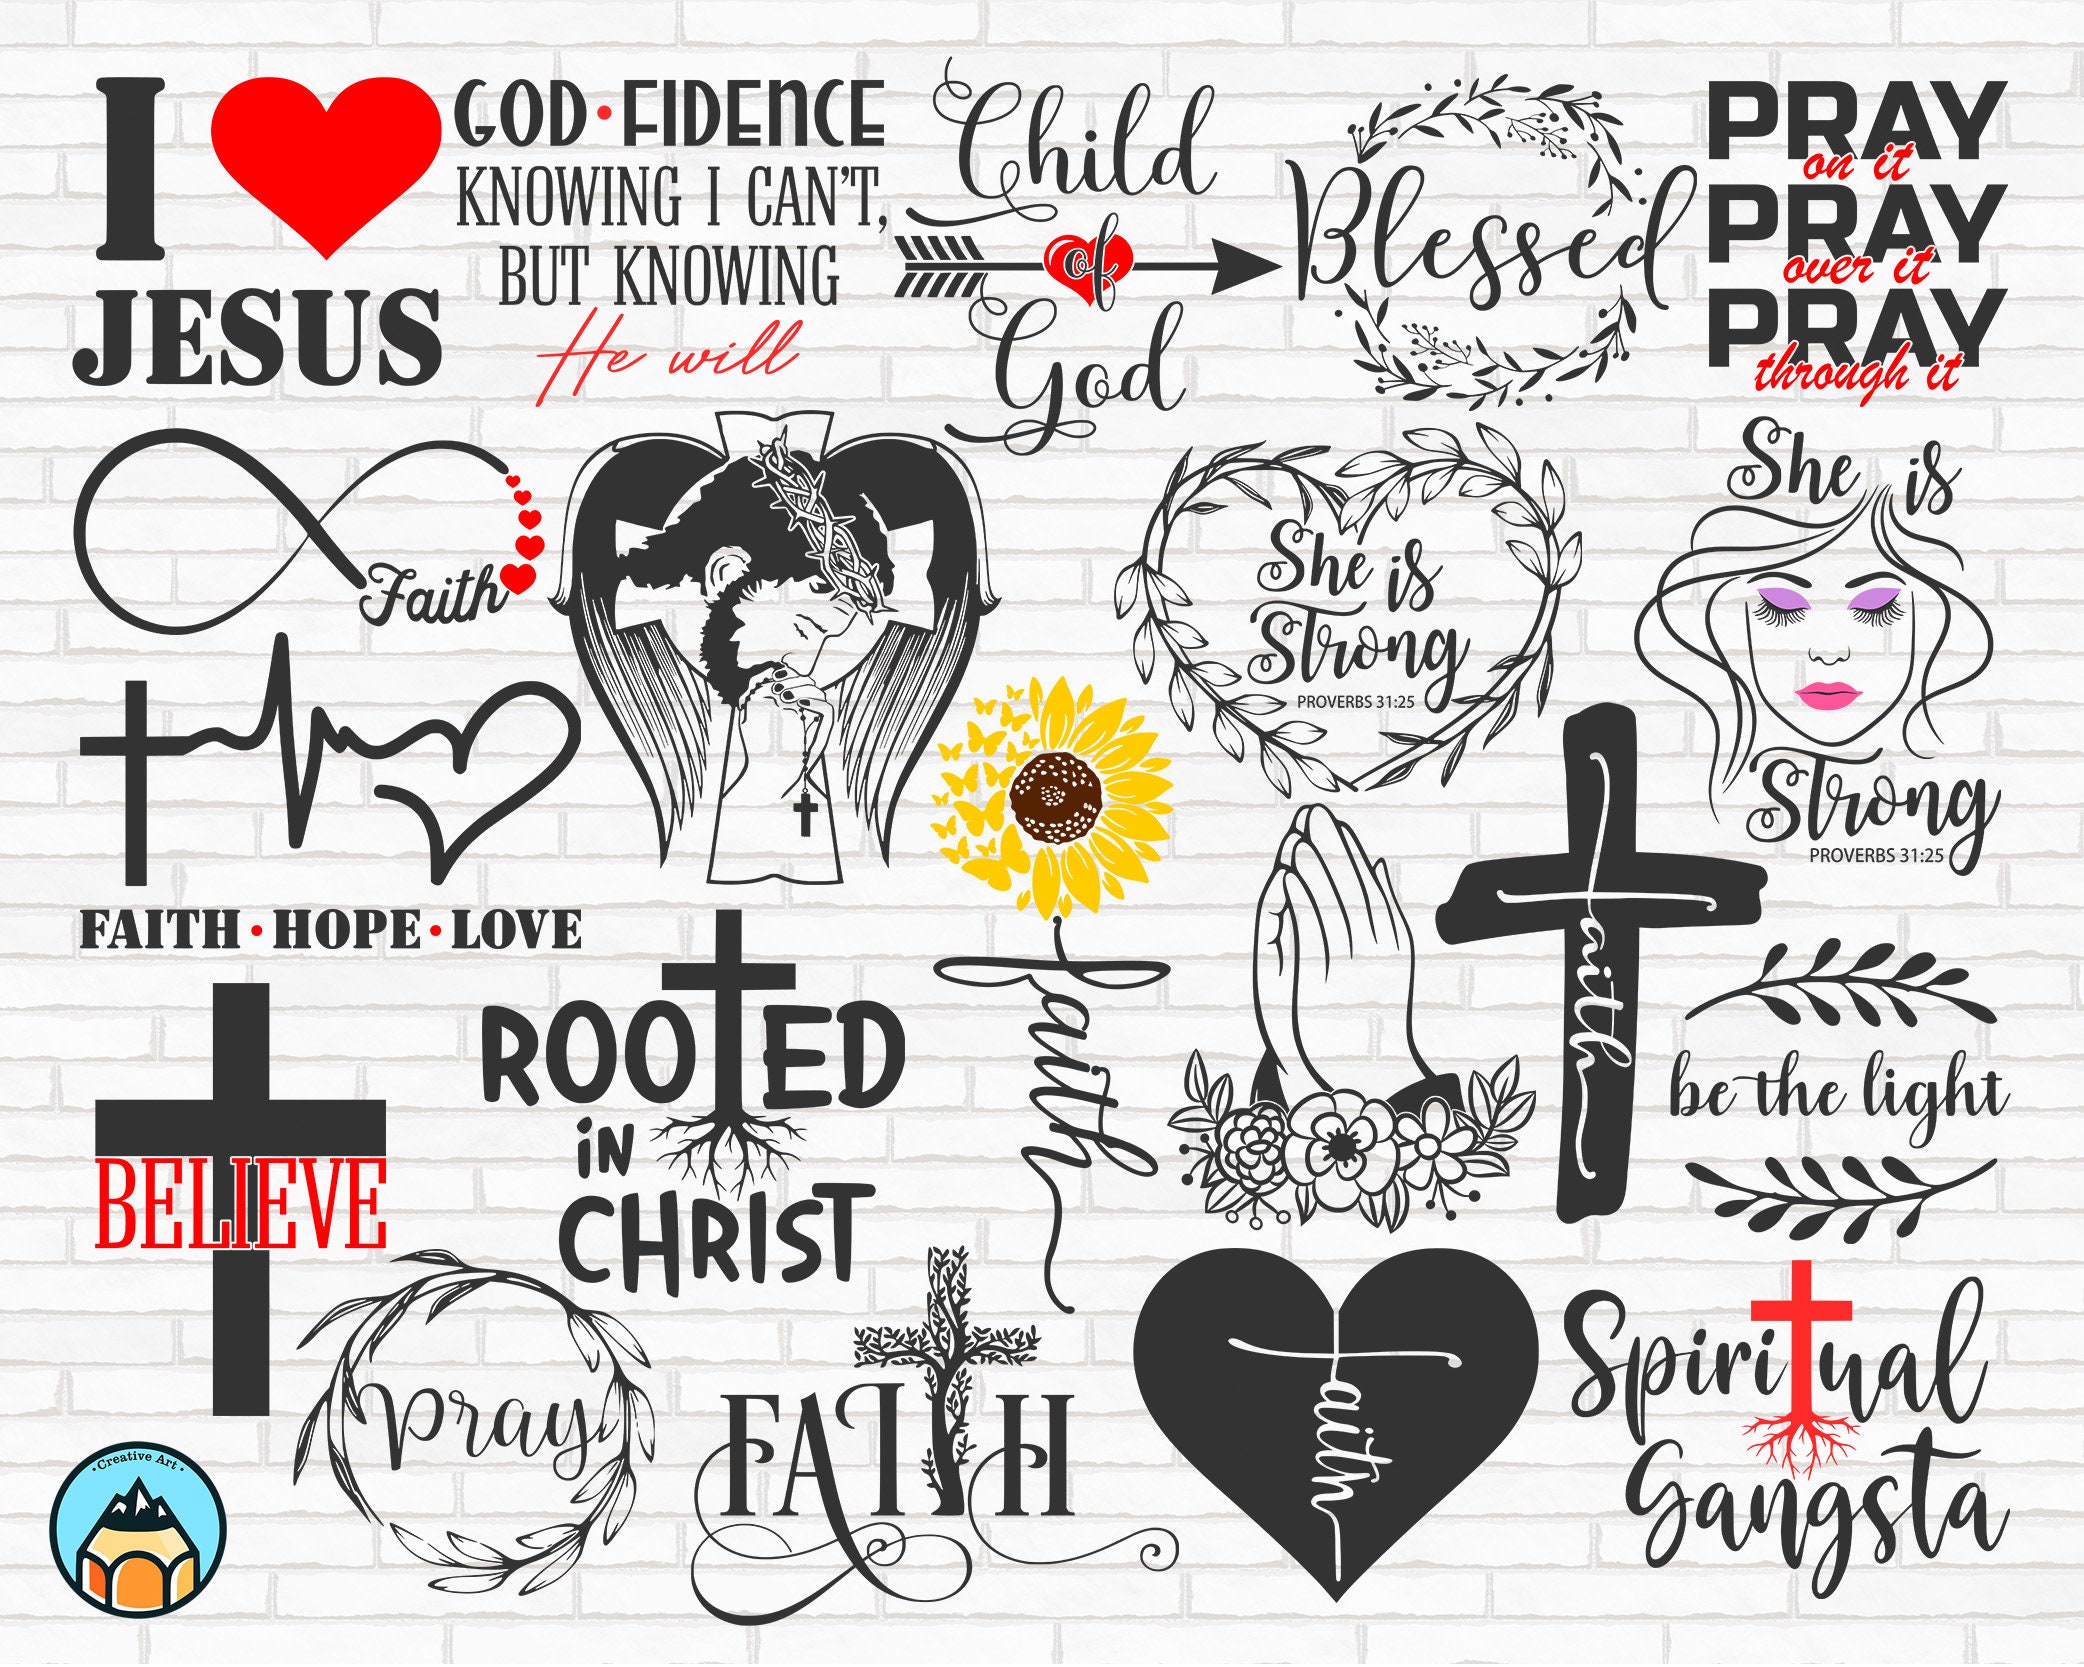 I
JESUS
GOD·FIDENCE
KNOWING I CAN'T,
BUT KNOWING
He will
Child
of
God
Blessed
PRAY
on it
PRAY
over it
PRAY
through it
Faith
She is
Strong
PROVERBS 31:25
She is
Strong
PROVERBS 31:25
FAITH·HOPE·LOVE
BELIEVE
ROOTED
in
CHRIST
faith
faith
be the light
pray
FAITH
faith
Spiritual
Gangsta
·Creative Art·